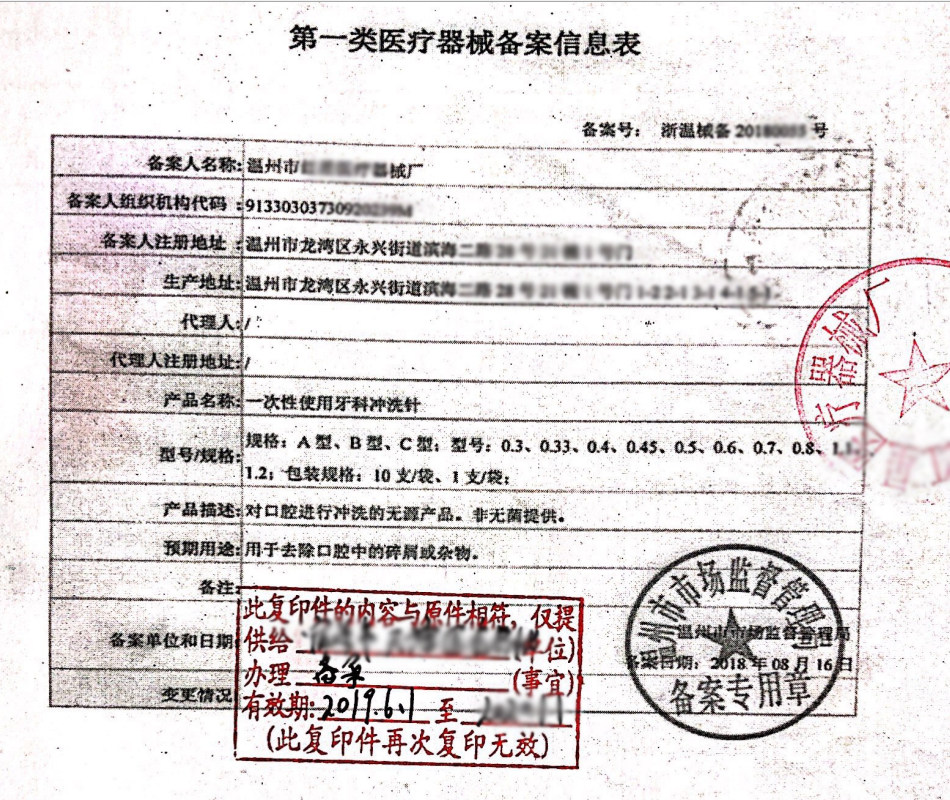 第一类医疗器械备案信息表
备案号： 浙温械备 201800 号
备案人名称: 温州市 械厂
备案人组织机构代码 : 9133030373092
备案人注册地址 : 温州市龙湾区永兴街道滨海二路
生产地址: 温州市龙湾区永兴街道滨海二路
代理人: /
代理人注册地址: /
产品名称: 一次性使用牙科冲洗针
型号/规格: 规格：A 型、B 型、C 型；型号：0.3、0.33、0.4、0.45、0.5、0.6、0.7、0.8、1.1、
1.2；包装规格：10 支/袋、1 支/袋；
产品描述: 对口腔进行冲洗的无源产品。非无菌提供。
预期用途: 用于去除口腔中的碎屑或杂物。
备注:
备案单位和日期: 温州市市场监督管理局
备案日期：2018 年 08 月 16 日
变更情况
此复印件的内容与原件相符，仅提
供给 (单位)
办理 备案 (事宜)
有效期: 2019.6.1 至
(此复印件再次复印无效)
温州市市场监督管理局
备案专用章
疗器械厂